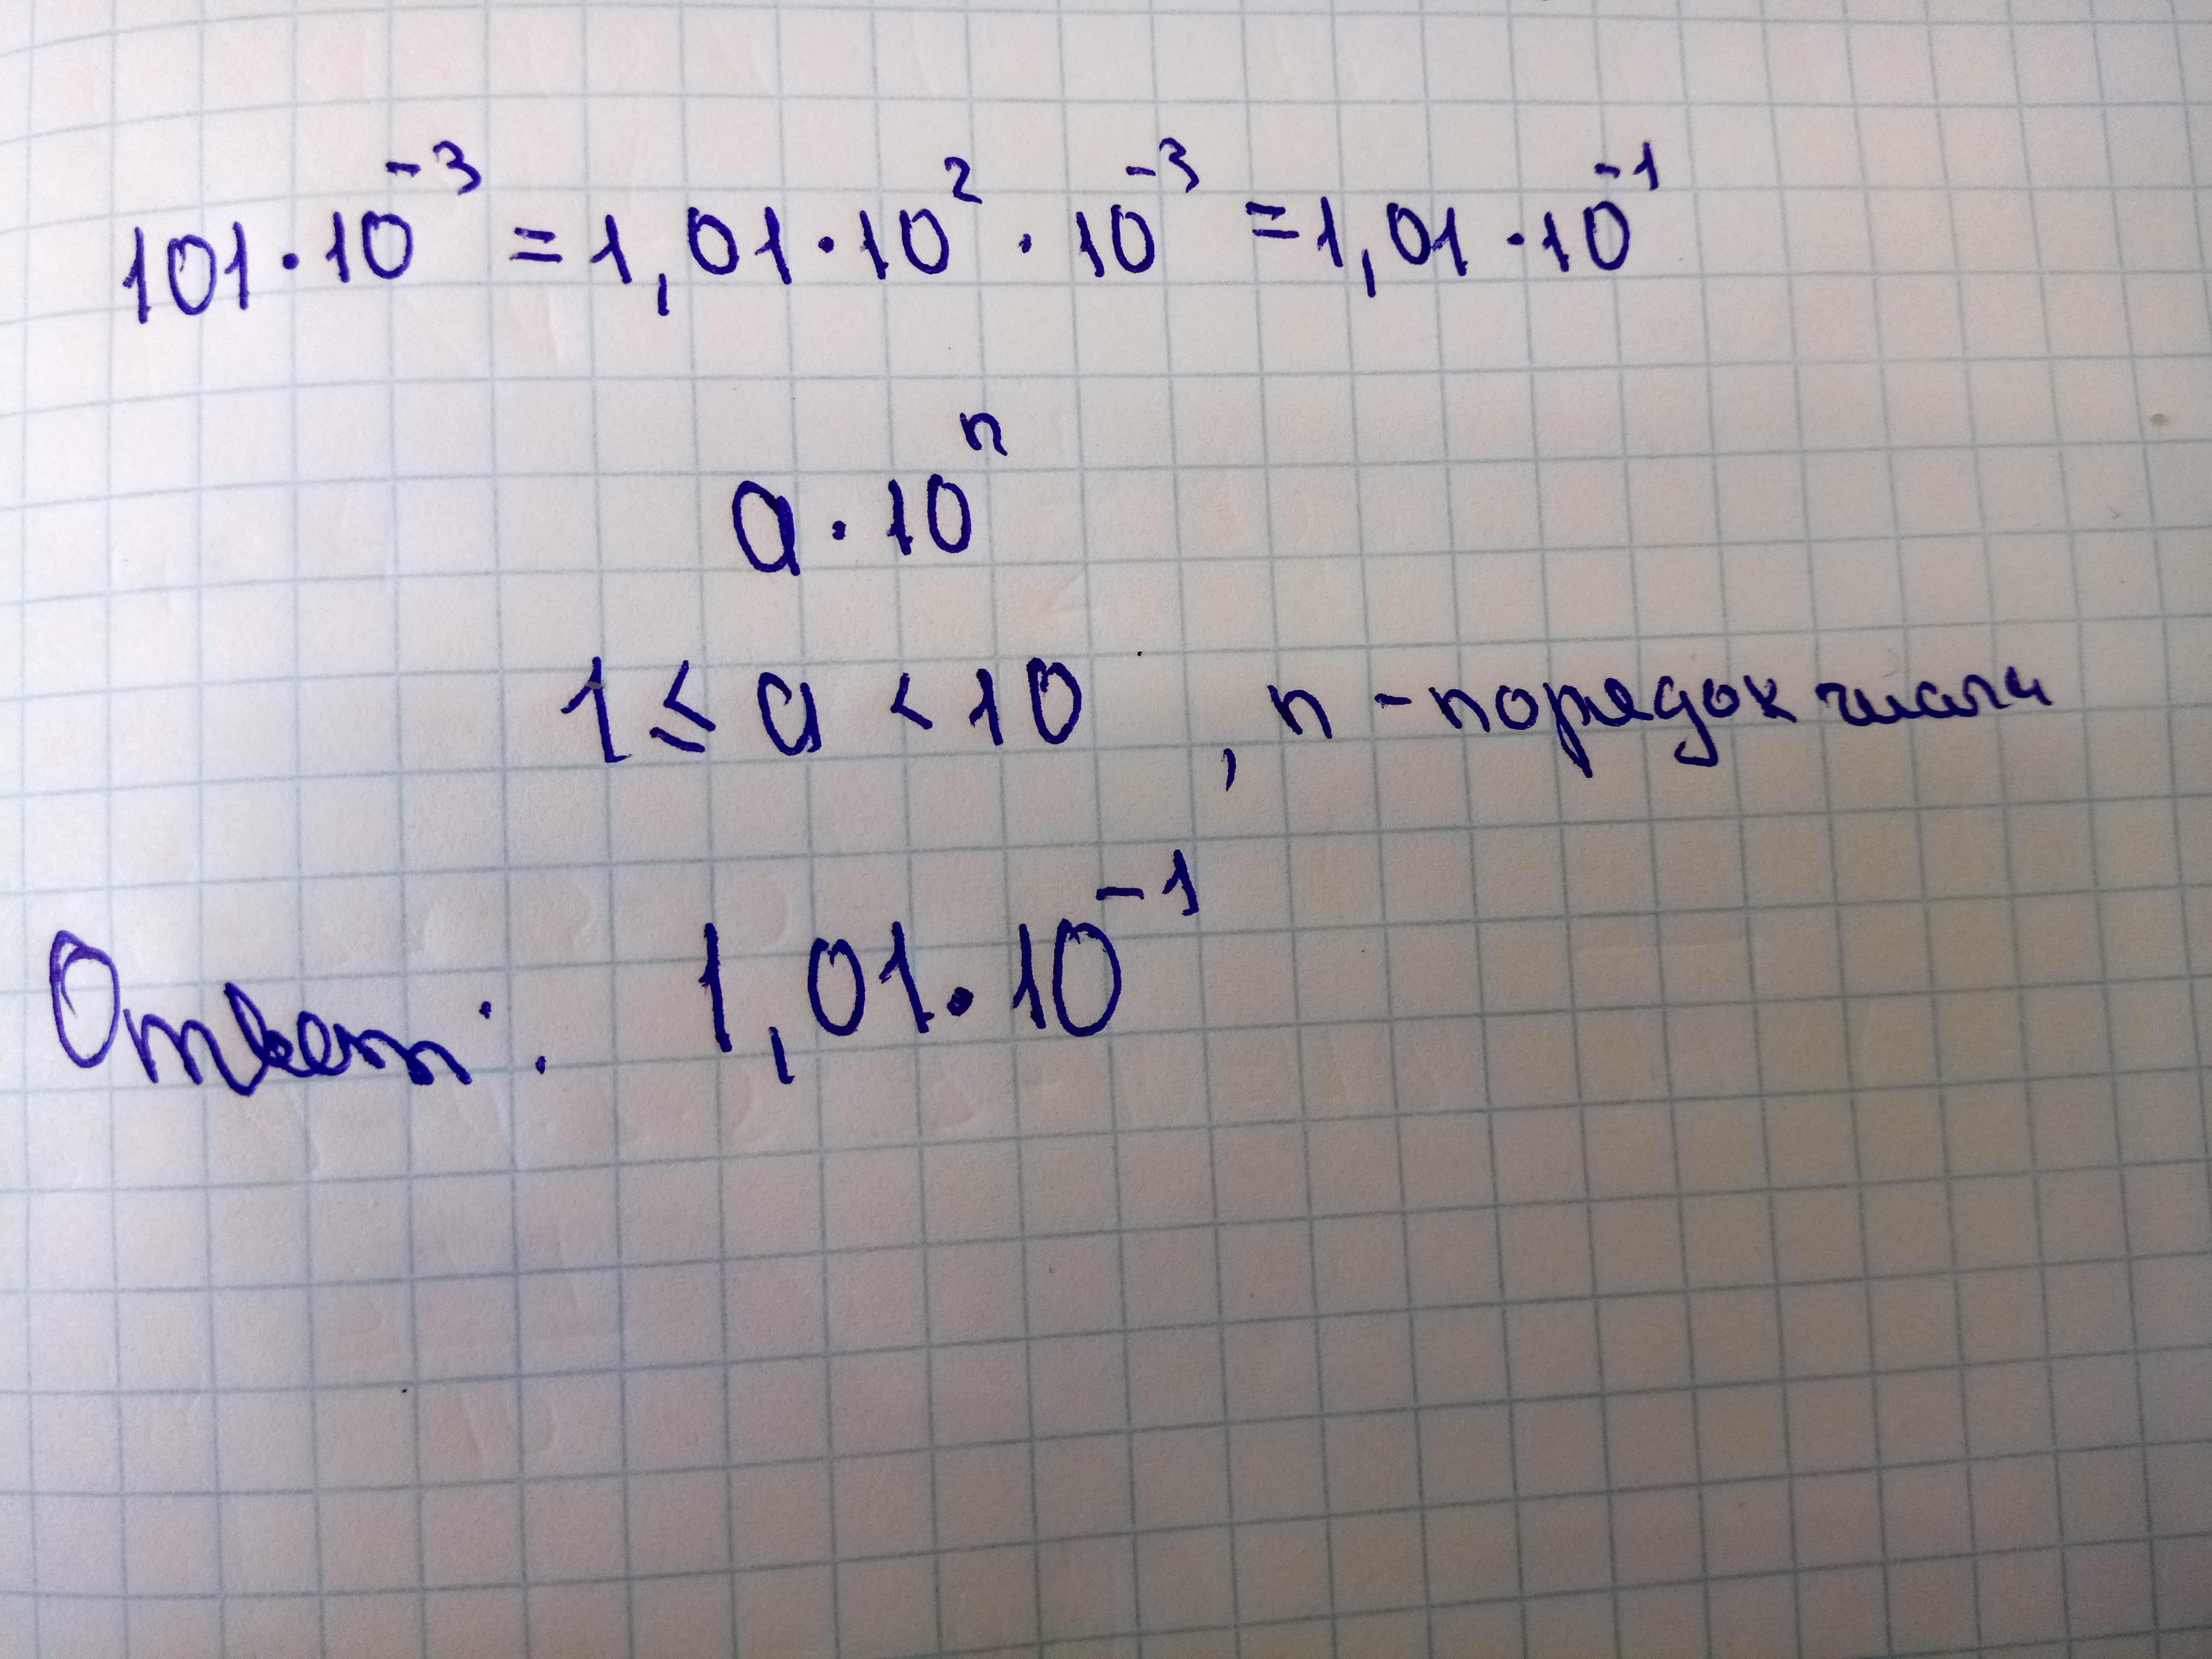 101·10⁻³ = 1,01·10²·10⁻³ = 1,01·10⁻¹
a·10ⁿ
1 ≤ a < 10 , n - порядок числа
Ответ: 1,01·10⁻¹